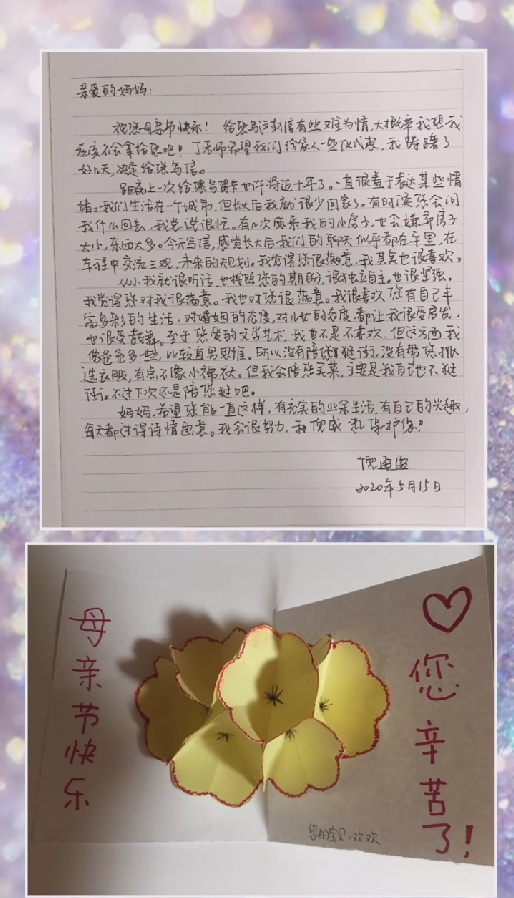 亲爱的妈妈：
祝您母亲节快乐！给您写这封信有些难为情，大概率我想我
应该不会拿给您吧！丁老师希望我们给家人一些仪式感，我踌躇了
好几天，决定给您写信。
距离上一次给您写贺卡也许将近十年了。一直很羞于表达某些情
绪。我们生活在一个城市，但长大后我就很少回家了。有时候您会问
我什么回去，我总说很忙。有几次您来我的小房子，也会嫌弃房子
太小，东西太多。今天写信，感觉长大后我们的聊天似乎都在车里，在
车程中交流三观，未来的规划。我觉得您很满意，我其实也很喜欢。
从小我就很听话，也按照您的期盼，很独立自主，也很坚强。
我觉得您对我很满意。我也对您很满意。我很喜欢您有自己丰
富多彩的生活，对婚姻的态度，对儿女的态度都让我很受启发，
也很受鼓舞。至于您爱的文学艺术，我真不是不喜欢，但这方面我
像爸爸多一些，比较直男思维。所以没有陪您逛街，没有帮您挑
选衣服，有点不像小棉袄。但我会陪您买菜，主要是我自己也不逛
街。不过下次还是陪您逛吧。
妈妈，希望您能一直这样，有充实的业余生活，有自己的兴趣，
每天都过得诗情画意。我会很努力，和倪威 保护您。
2020年5月15日
母亲节快乐
您辛苦了！
您的宝贝：欢欢